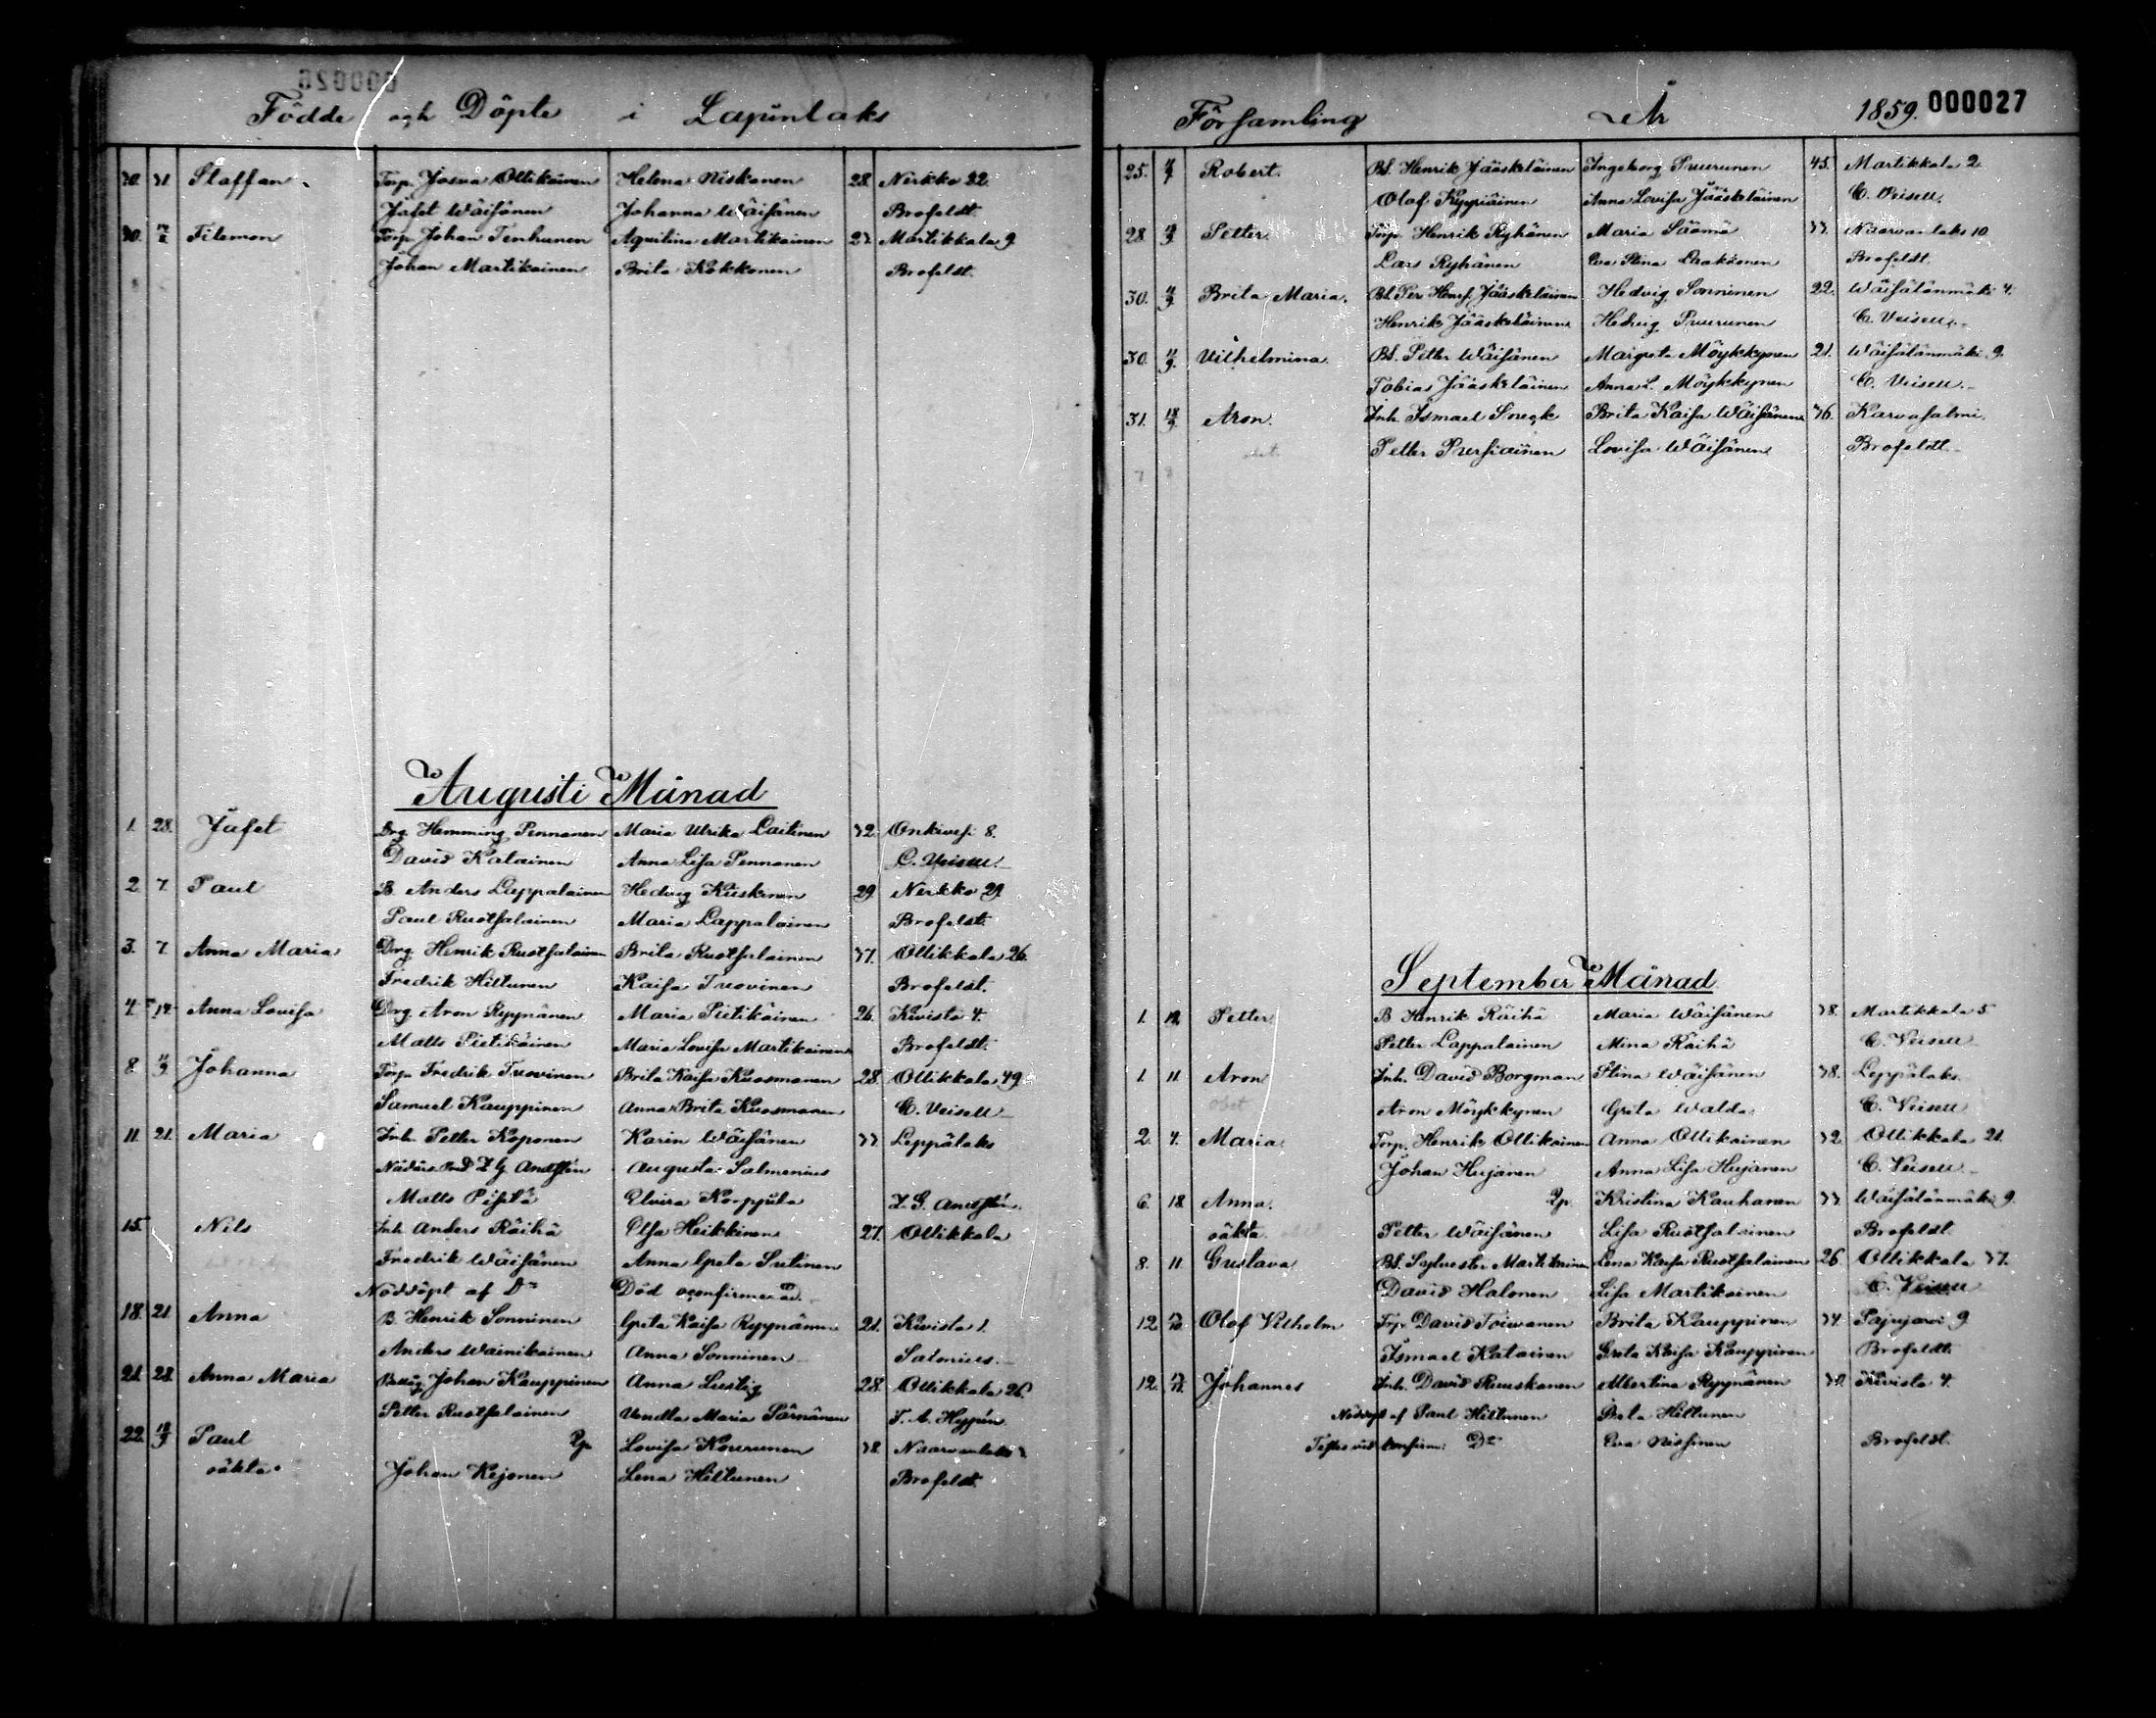 Födde och Döpte i Lapinlaks
30. 31. Staffan. Torp. Josua Ollikainen Helena Niskanen 28. Nerkko 22.
Jafet Wäisänen Johanna Wäisänen Brofeldt.
30. 14/8 Filemon Torp. Johan Tenhunen Aquilina Martikainen 27. Martikkala 9.
Johan Martikainen Brita Kokkonen Brofeldt.
Augusti Månad
1. 28. Jafet Drg. Hemming Pennanen Maria Ulrika Laitinen 32. Onkivesi 8.
David Katainen Anna Lisa Pennanen C. Veisell.
2. 7. Paul B. Anders Lappalainen Hedvig Kuskinen 29. Nerkko 29.
Paul Ruotsalainen Maria Lappalainen Brofeldt.
3. 7. Anna Maria Drg. Henrik Ruotsalainen Brita Ruotsalainen 37. Ollikkala 26.
Fredrik Hiltunen Kaisa Tuovinen Brofeldt.
4. 14. Anna Lovisa Drg. Aron Ryynänen Maria Pietikäinen 26. Kivistö 4.
Matts Pietikäinen Maria Lovisa Martikainen Brofeldt.
8. 11/9 Johanna Torp. Fredrik Tuovinen Brita Kaisa Kuosmanen 28. Ollikkala 49.
Samuel Kauppinen Anna Brita Kuosmanen C. Veisell
11. 21. Maria Inh. Petter Koponen Karin Wäisänen 33. Leppälaks
Augusta Salmenius
Matts Elvira
15. Nils Inh. Anders Räihä Elsa Heikkinen 27. Ollikkala
Fredrik Wäisänen Anna Greta Sutinen
Nöddöpt af Do Död oconfirmerad.
18. 21. Anna B. Henrik Sonninen Greta Kaisa Ryynänen 21. Kivistö 1.
Anders Wainikainen Anna Sonninen
21. 28. Anna Maria Johan Kauppinen Anna Lustig 28. Ollikkala 26.
Petter Ruotsalainen Vendla Maria Särnänen
22. 18/9 Paul Pp. Lovisa Kourunen 38. Naarvanlaks
oäkta. Johan Kejonen Lena Hiltunen Brofeldt.
Församling År 1859. 000027
25. 4/9 Robert. Bd. Henrik Jääskeläinen Ingeborg Puurunen 45. Martikkala 2.
Olof Kyyriäinen Anna Lovisa Jääskeläinen C. Veisell.
28. Petter. Torp. Henrik Ryhänen Maria Säämä 33. Naarvanlaks 10.
Lars Ryhänen Eva Stina Laakkonen Brofeldt.
30. 4/9 Brita Maria. Bd. Per Henr. Jääskeläinen Hedvig Sonninen 22. Wäisälänmäki 4.
Henrik Jääskeläinen Hedvig Puurunen C. Veisell.
30. 4/9. Vilhelmina. Bd. Petter Wäisänen Margreta Möykkynen 21. Wäisälänmäki 9.
Tobias Jääskeläinen Anna L. Möykkynen C. Veisell.
31. 18/9 Aron. Inh. Ismael Sneck Brita Kaisa Wäisänen 36. Karvasalmi.
Petter Pursiainen Lovisa Wäisänen Brofeldt.
September Månad
1. 12. Petter B. Henrik Räihä Maria Wäisänen 38. Martikkala 5.
Petter Lappalainen Mina Räihä C. Veisell
1. 11. Aron Inh. David Borgman Stina Wäisänen 38. Leppälaks.
obet Aron Möykkynen Greta Walda C. Veisell
2. 4. Maria. Torp. Henrik Ollikainen Anna Ollikainen 32. Ollikkala 21.
Johan Hujanen Anna Lisa Hujanen C. Veisell
6. 18. Anna. Pp. Kristina Kauhanen 33. Wäisälänmäki 9.
oäkta. Petter Wäisänen Lisa Ruotsalainen Brofeldt
8. 11. Gustava Bd. Sylvester Martikainen Lena Kaisa Ruotsalainen 26. Ollikkala 37.
David Halonen Lisa Martikainen C. Veisell
12. Olof Vilhelm Trp. David Toivanen Brita Kauppinen 34. Pajujärvi 9.
Ismael Katainen Greta Kaisa Kauppinen Brofeldt.
12. Johannes Inh. David Ruuskanen Albertina Ryynänen 30. Kivistö 4.
Nöddöpt af Paul Hiltunen Brita Hiltunen
vid konfirm: Do Eva Nissinen Brofeldt.